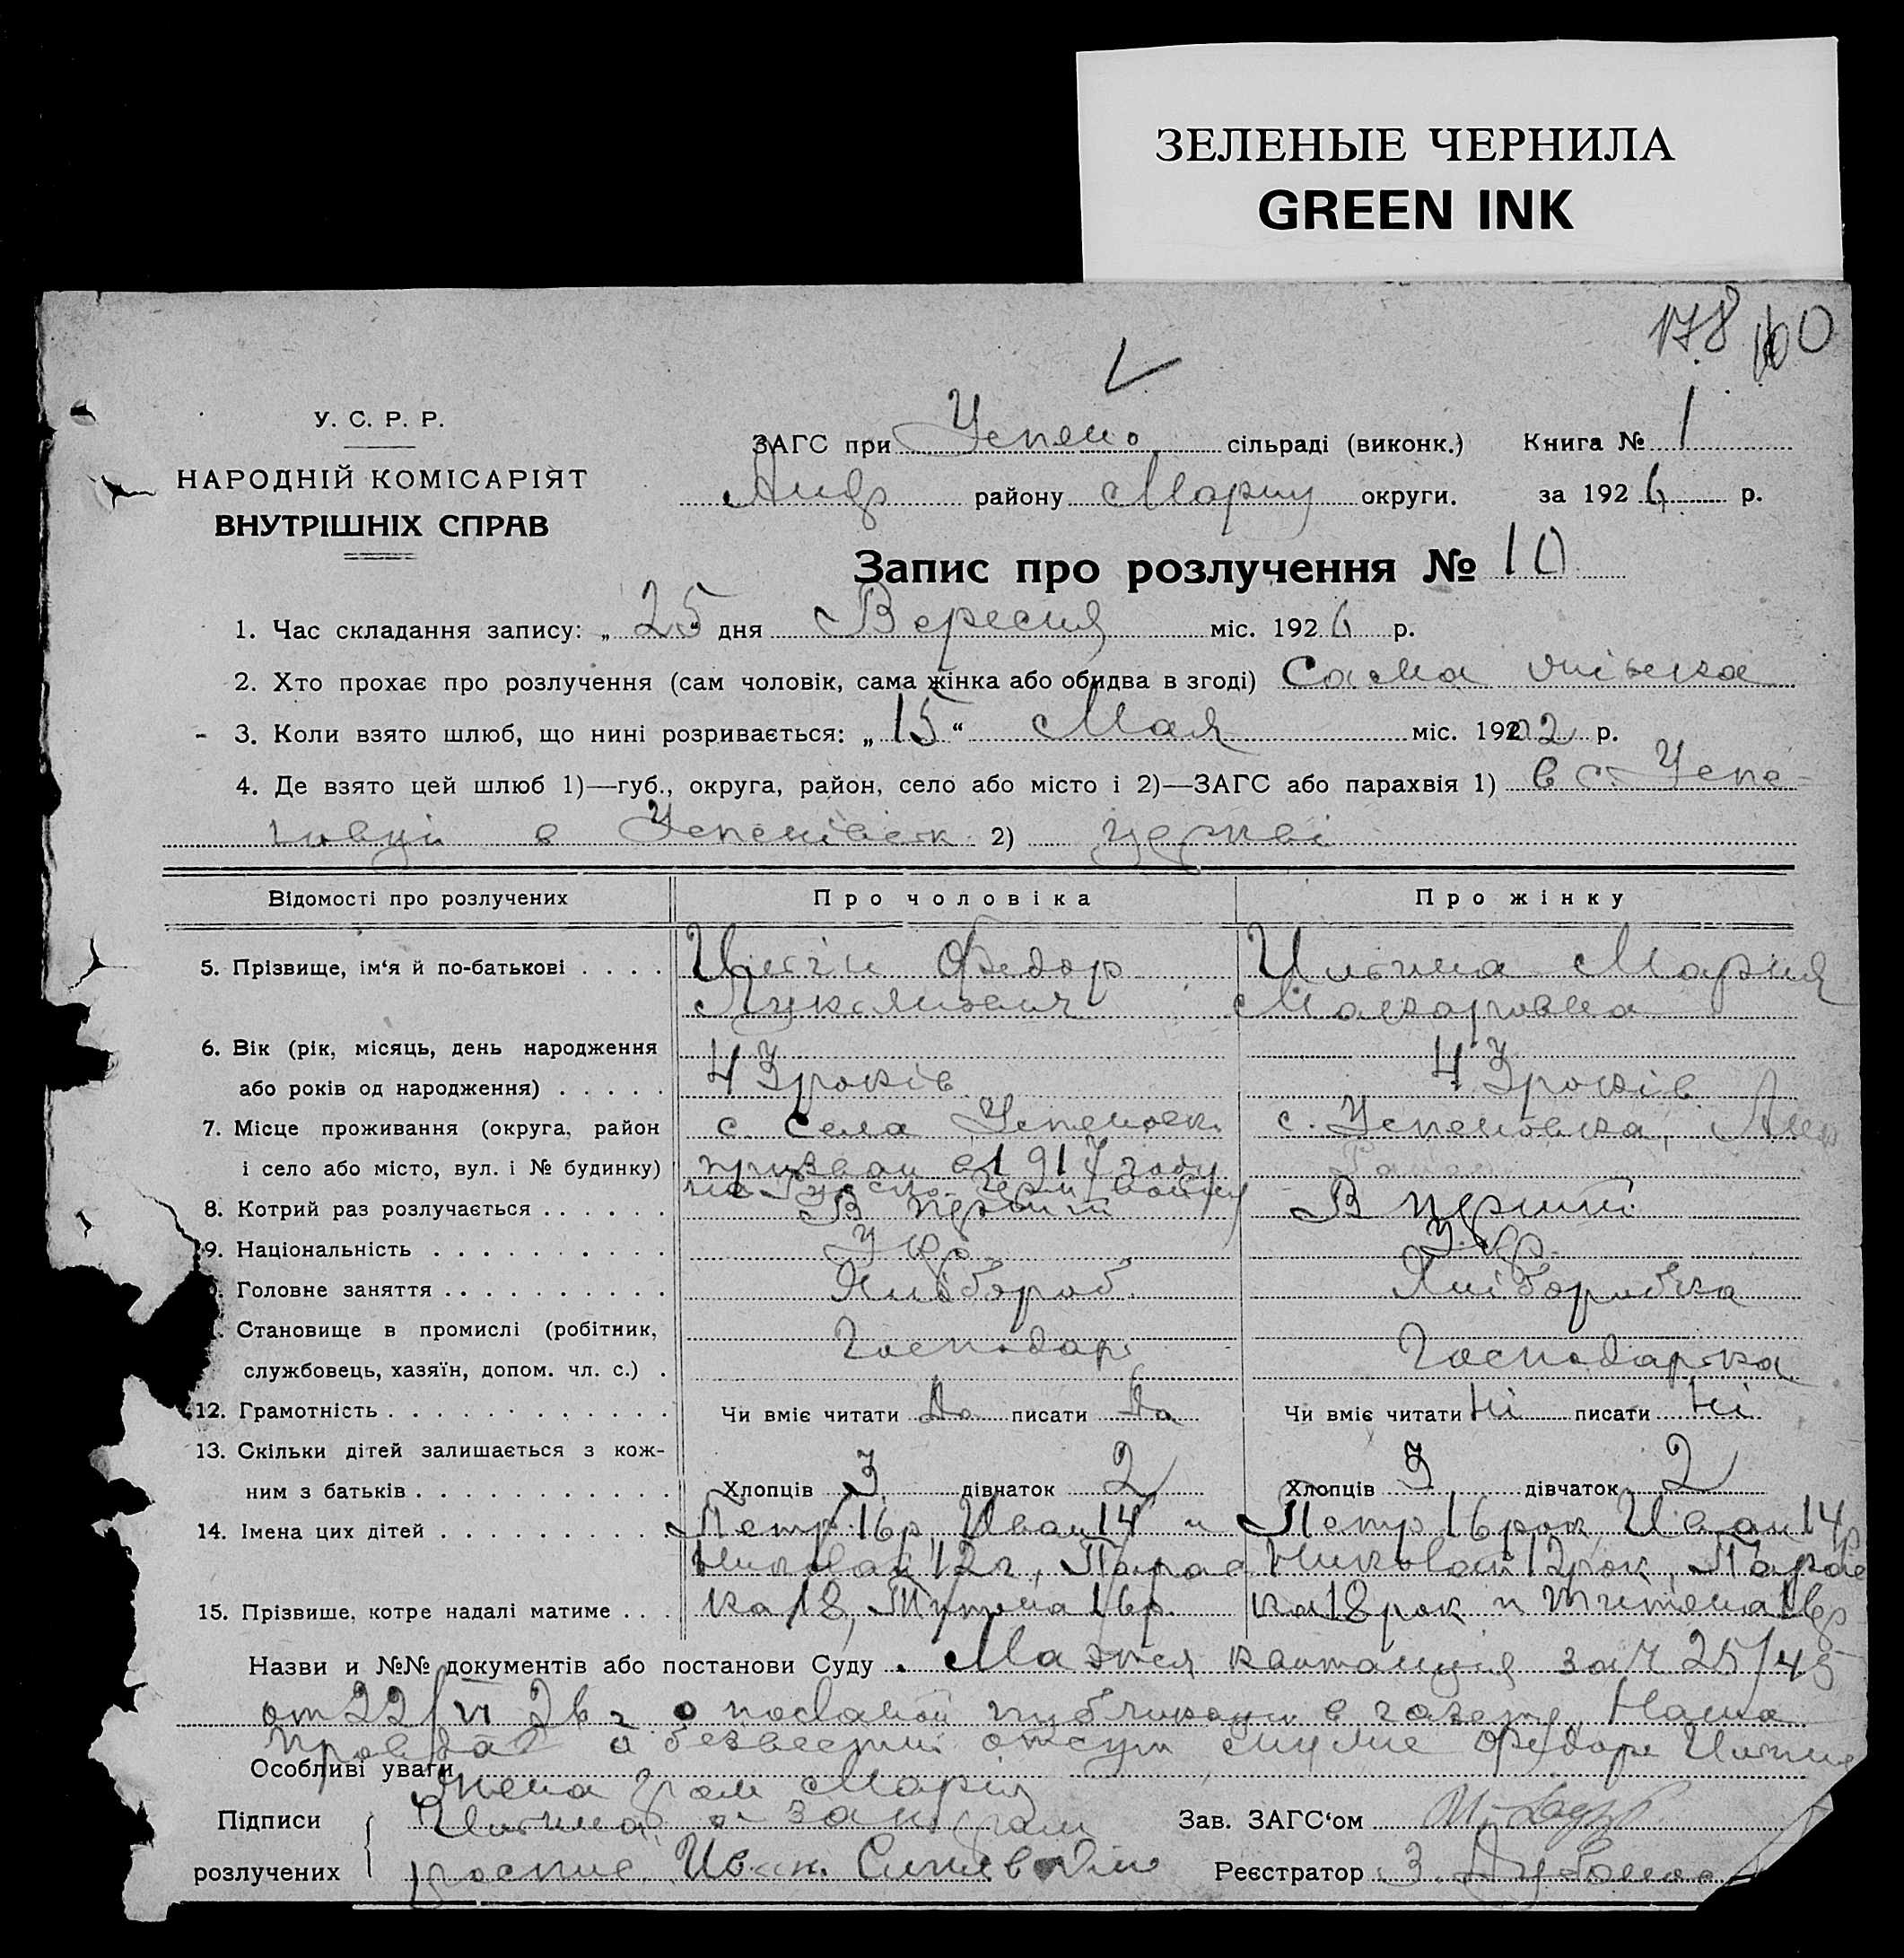 ЗЕЛЕНЫЕ ЧЕРНИЛА
GREEN INK
178
У. С. Р. Р.
НАРОДНІЙ КОМІСАРІЯТ
ВНУТРІШНІХ СПРАВ
ЗАГС при Успено сільраді (виконк.) Книга № 1
Андр району Мариу округи. за 1926 р.
Запис про розлучення № 10
1. Час складання запису: „25“ дня Вересня міс. 1926 р.
2. Хто прохає про розлучення (сам чоловік, сама жінка або обидва в згоді) Сама жінка
3. Коли взято шлюб, що нині розривається: „15“ Мая міс. 1902 р.
4. Де взято цей шлюб 1)—губ., округа, район, село або місто і 2)—ЗАГС або парахвія 1) в с. Успе-
нивци в Успенівск 2) церкві
Відомості про розлучених Про чоловіка Про жінку
5. Прізвище, ім‘я й по-батькові . . . . Федор Мария
Макаровна
6. Вік (рік, місяць, день народження
або років од народження) . . . . . 43 років 43 років
7. Місце проживання (округа, район с. села Успеновк. с. Успеновка, Анд
і село або місто, вул. і № будинку) призван в 1917 году
на герм войну
8. Котрий раз розлучається . . . . . . В первий В перший
9. Національність . . . . . . . . . . Укр. Укр.
Головне заняття . . . . . . . . . . Хлібороб Хліборобка
Становище в промислі (робітник,
службовець, хазяїн, допом. чл. с.) . Господар Господарка
12. Грамотність . . . . . . . . . . . . Чи вміє читати да писати да Чи вміє читати ні писати ні
13. Скільки дітей залишається з кож-
ним з батьків . . . . . . . . . . . Хлопців 3 дівчаток 2 Хлопців 3 дівчаток 2
14. Імена цих дітей . . . . . . . . . Петр 16 р. Иван 14 и Петр 16 рок Иван 14 р
Николай 12 г, Парас Николай 12 рок, Парас
15. Прізвище, котре надалі матиме . . . ка 18, 16 р. ка 18 рок и 16 р
Назви и №№ документів або постанови Суду . Маэтся квитанция за № 25/45
от 22/VI 26 г. о публикации в газету Наша
Правда о безвестни отсут Федоре
Особливі уваги
Підписи грам Мария
за не грам Зав. ЗАГС‘ом
розлучених роспис. Иван Реєстратор З.